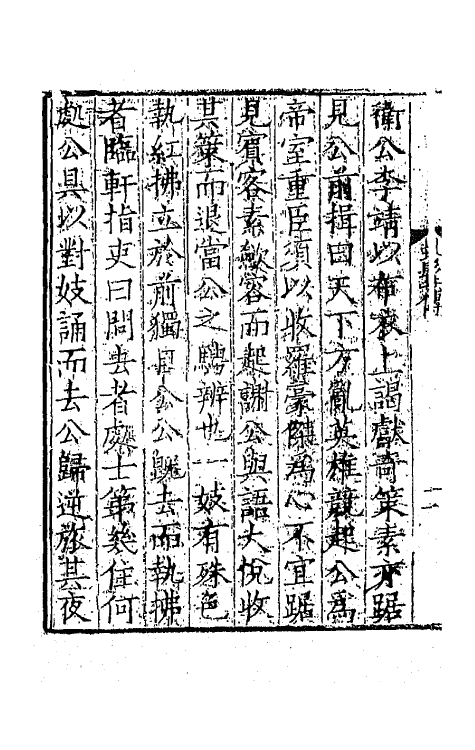 衛公李靖以布衣上謁獻奇策素亦踞
見公前揖曰天下方亂英雄競起公爲
帝室重臣須以收羅豪傑爲心不宜踞
見賓客素歛容而起謝公與語大悅收
其策而退當公之騁辨也一妓有殊色
執紅拂立於前獨目公公既去而執拂
者臨軒指吏曰問去者處士第幾住何
處公具以對妓誦而去公歸逆旅其夜